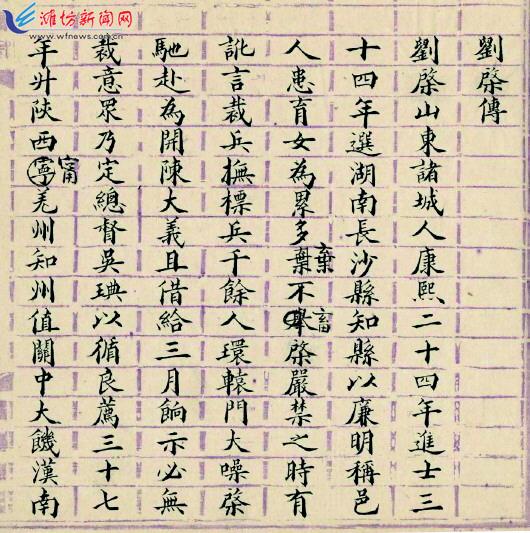 潍坊新闻网
劉棨傳
劉棨山東諸城人康熙二十四年進士三
十四年選湖南長沙縣知縣以廉明稱邑
人患育女為累多棄棄不舉畜棨嚴禁之時有
訛言裁兵撫標兵千餘人環轅門大噪棨
馳赴為開陳大義且借給三月餉示必無
裁意眾乃定總督吳琠以循良薦三十七
年升陝西寧甯羌州知州值關中大饑漢南